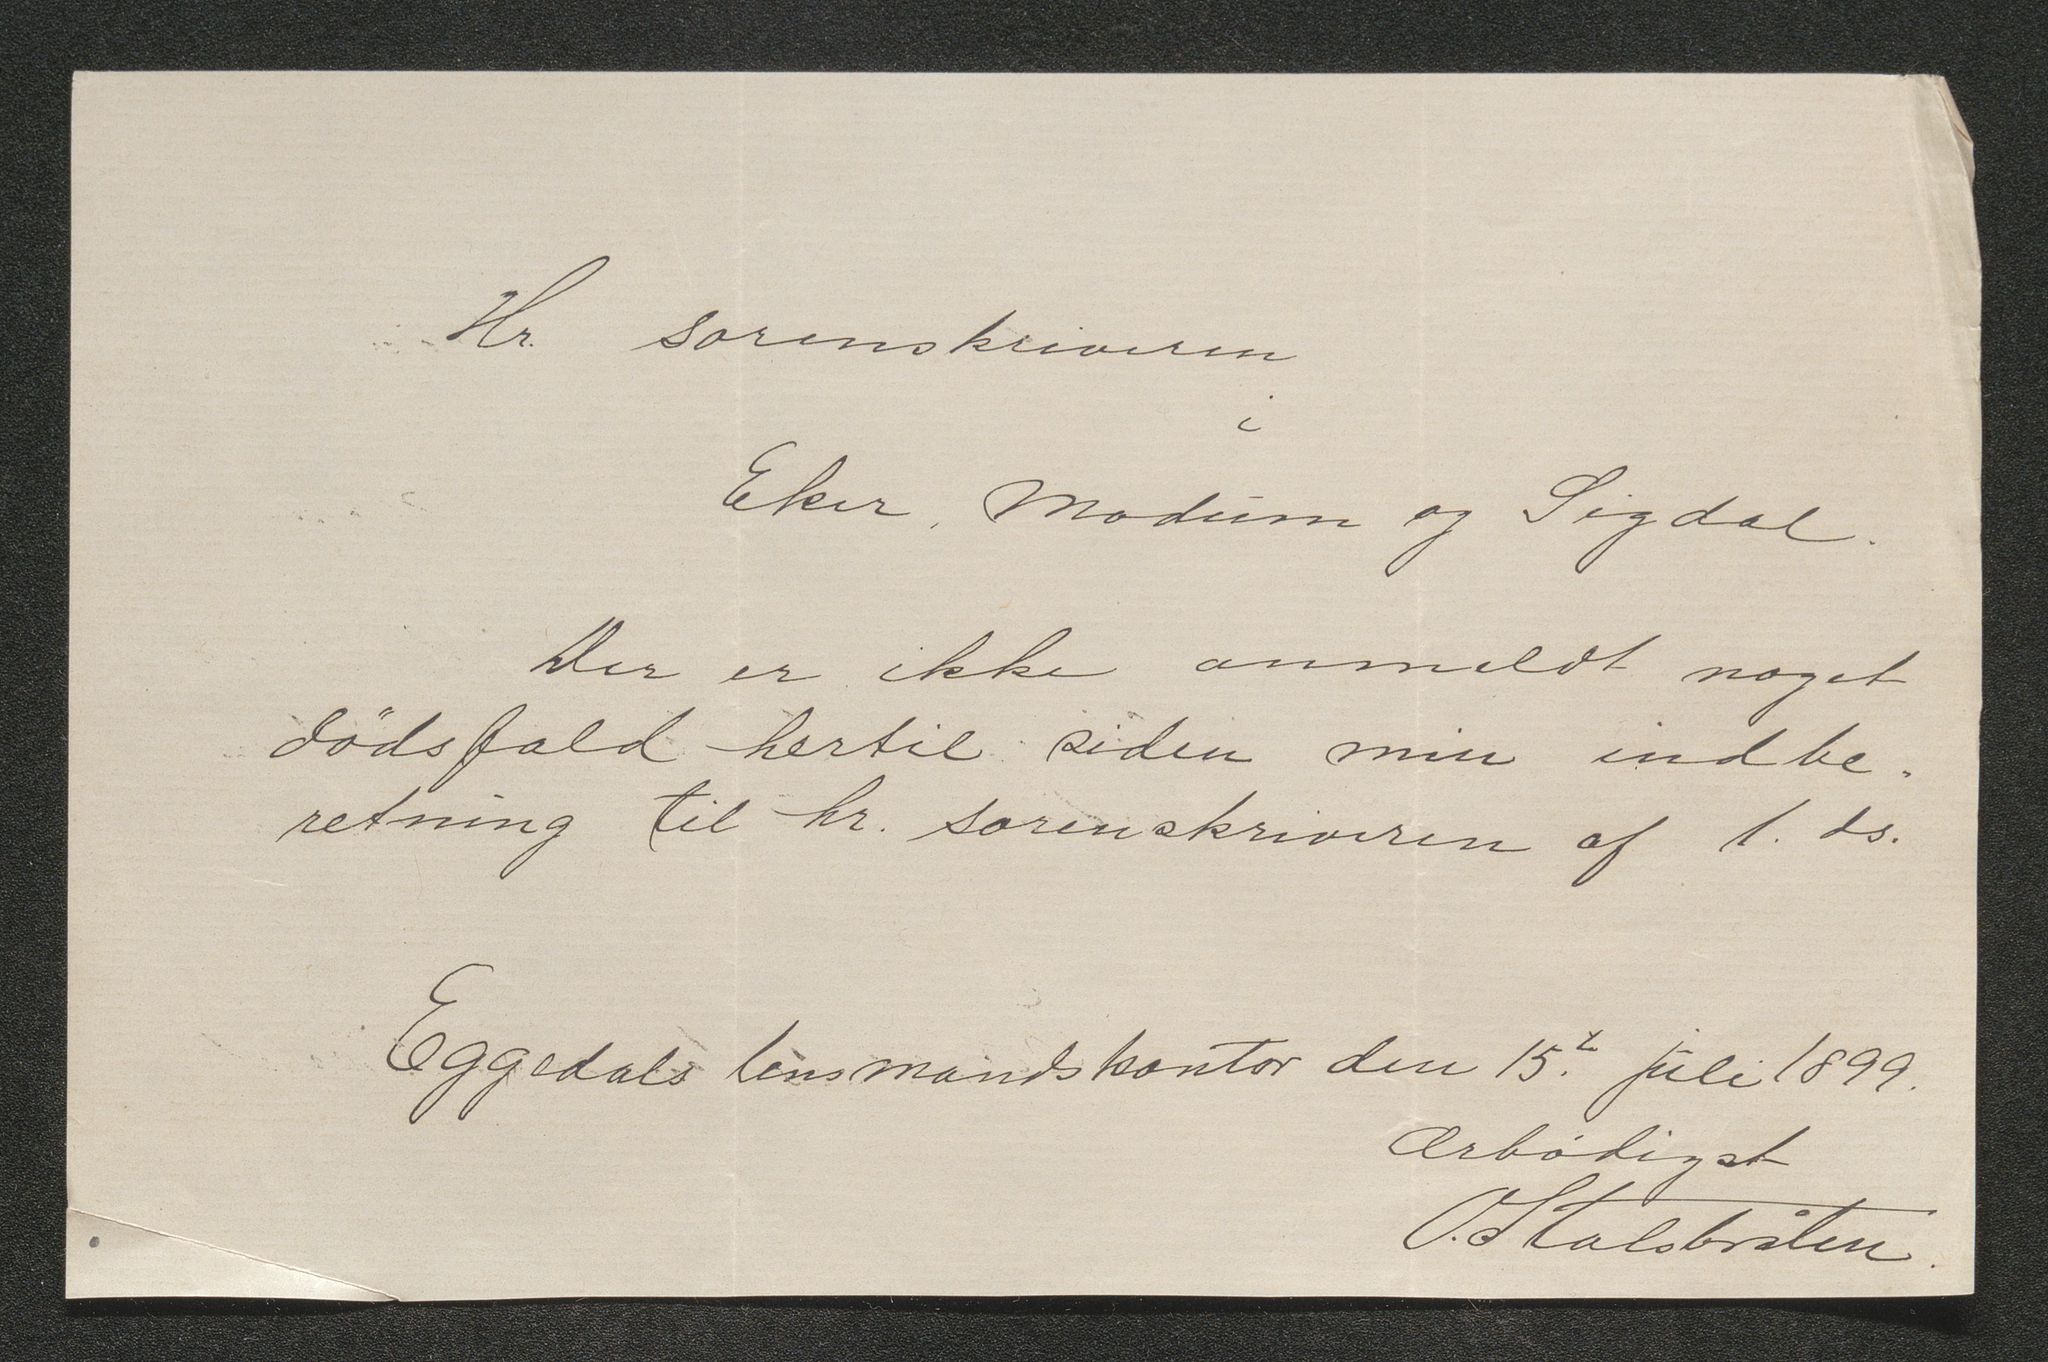 Hr. sorenskriveren
i
Eker, Modum og Sigdal.
Der er ikke anmeldt noget
dödsfald hertil siden min indbe-
retning til hr. sorenskriveren af 1. ds.
Eggedals lensmandskontor den 15. juli 1899.
Ærbödigst
O. Stalsbråten.